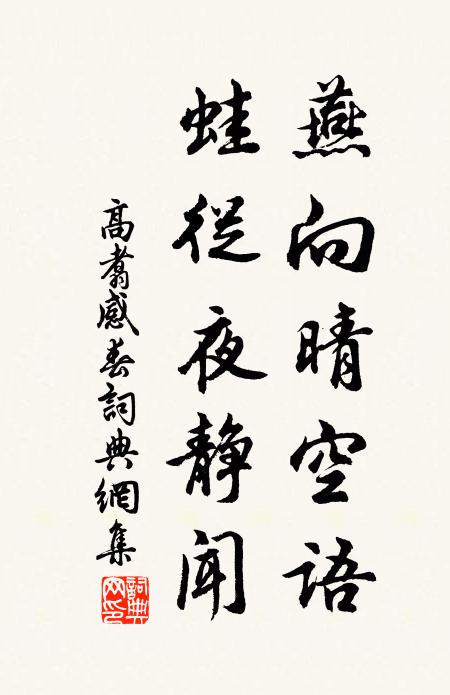 燕向晴空語
蛙從夜静聞
高翥感春詞典網集
詞典网印